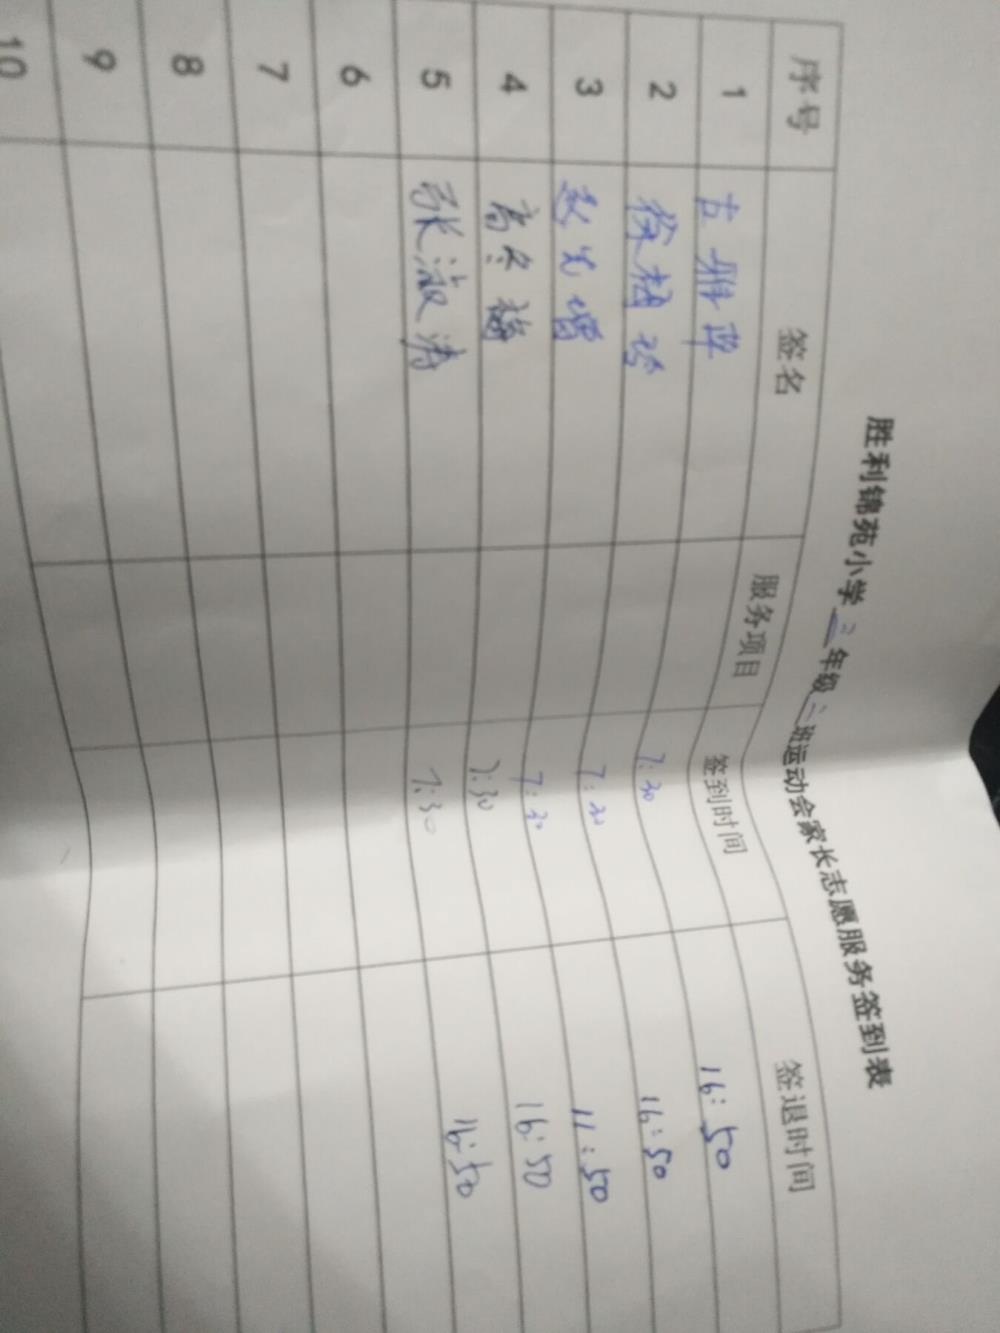 胜利锦苑小学三年级二班运动会家长志愿服务签到表
序号 签名 服务项目 签到时间 签退时间
1 古雅萍 7:30 16:50
2 徐 7:30 16:50
3 赵光增 7:30 11:50
4 高冬梅 7:30 16:50
5 张淑涛 7:30 16:50
6
7
8
9
10